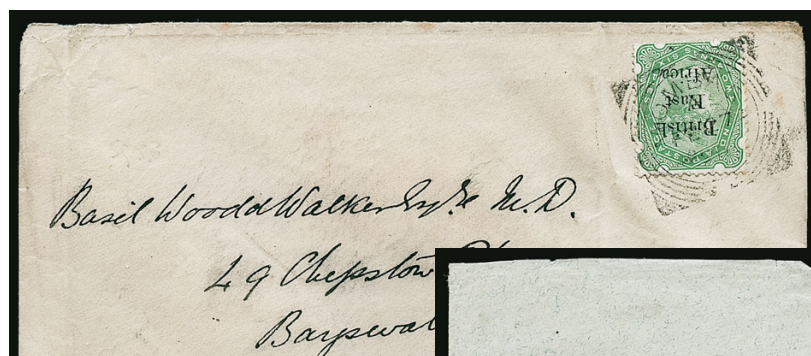 British
East
Africa
Basil Woodd Walker Esqre M.D.
49 Chepstow
Bayswat